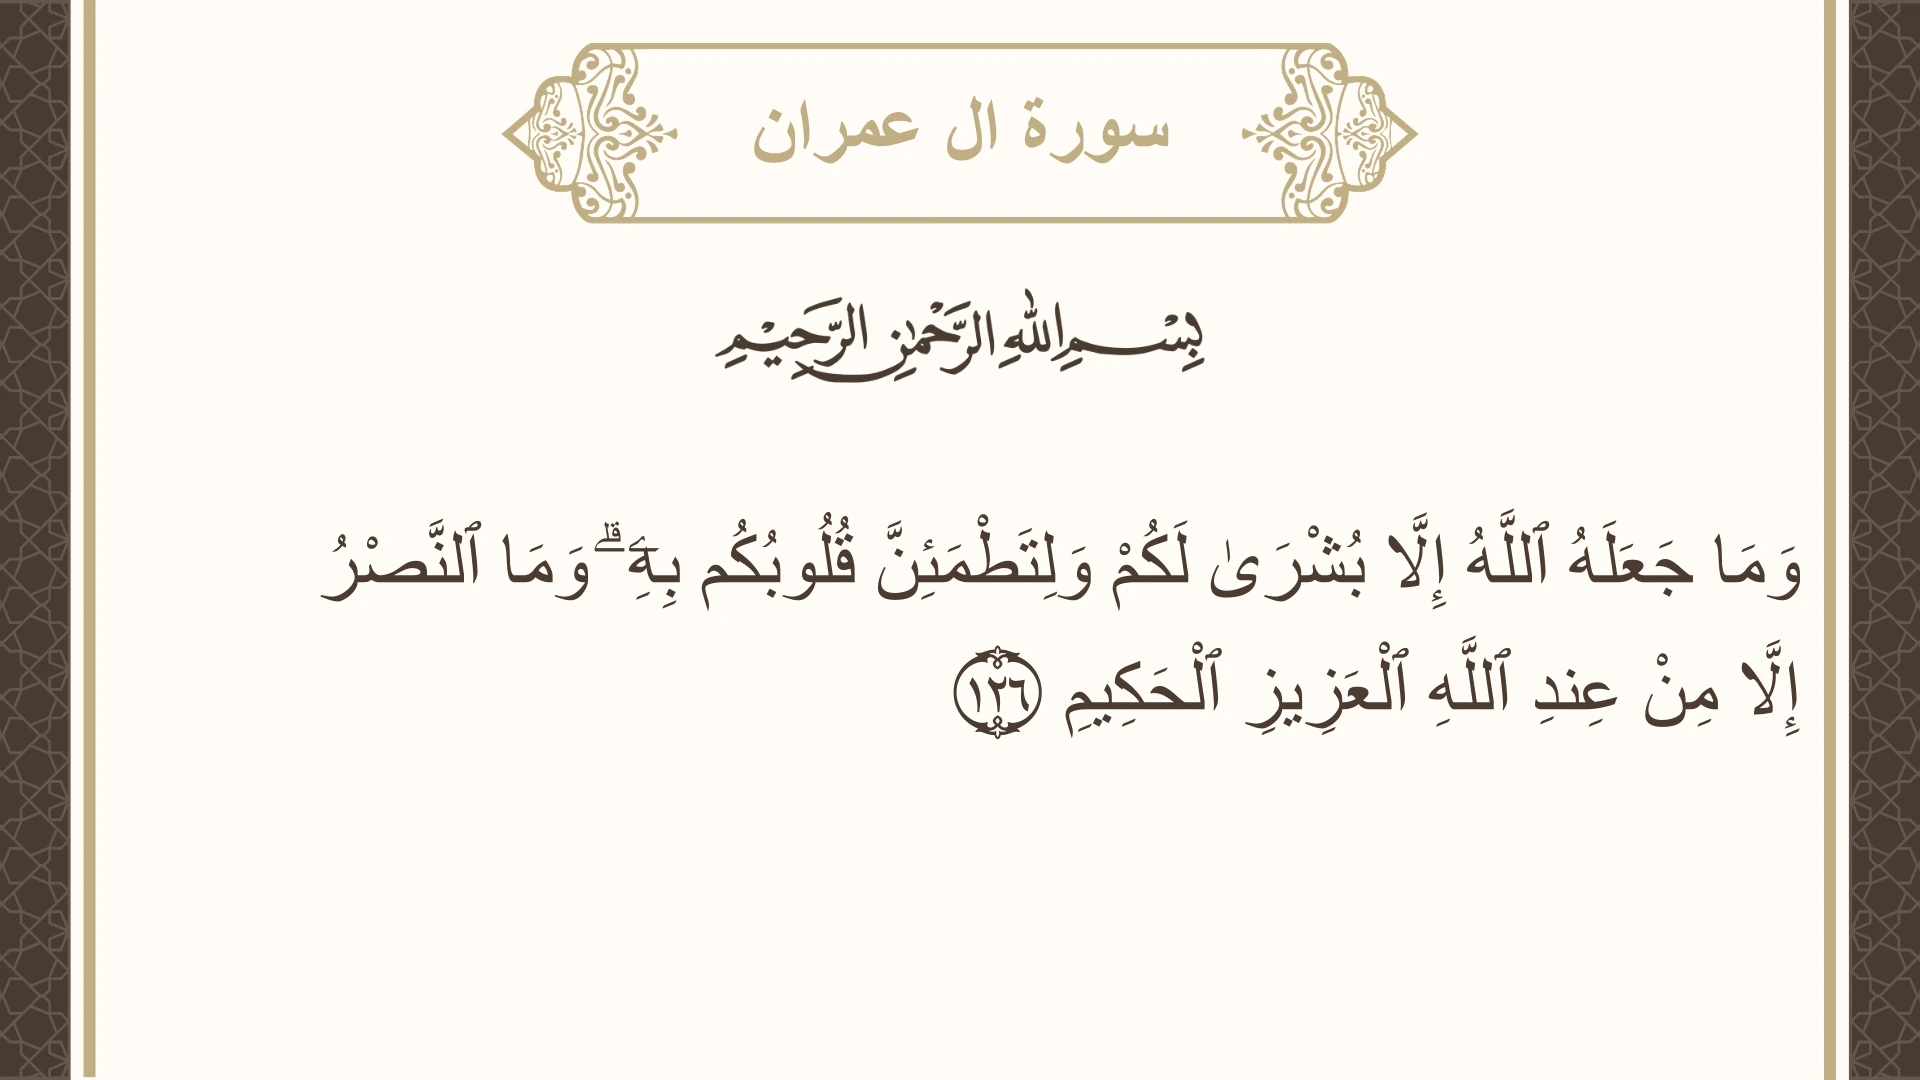 سورة ال عمران
بِسْمِ اللهِ الرَّحْمٰنِ الرَّحِيْمِ
وَمَا جَعَلَهُ ٱللَّهُ إِلَّا بُشْرَىٰ لَكُمْ وَلِتَطْمَئِنَّ قُلُوبُكُم بِهِۦ ۗ وَمَا ٱلنَّصْرُ
إِلَّا مِنْ عِندِ ٱللَّهِ ٱلْعَزِيزِ ٱلْحَكِيمِ ١٢٦